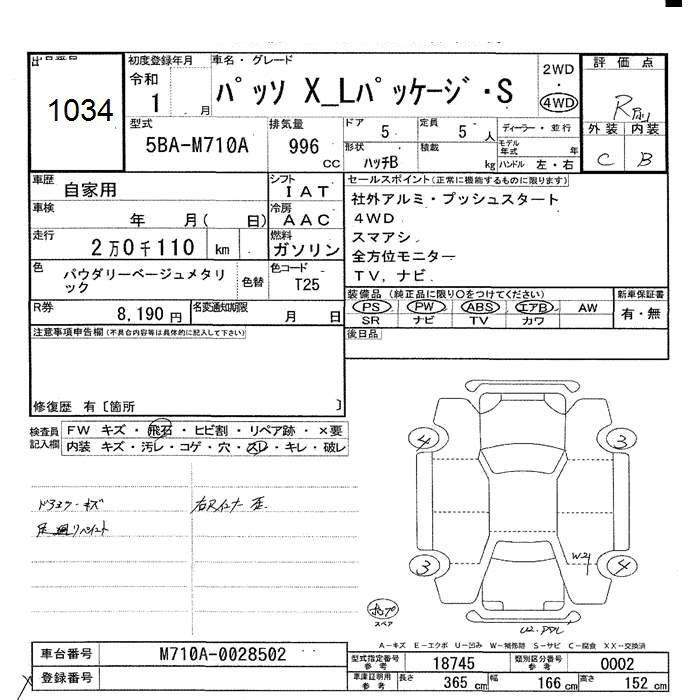 出品番号
1034
初度登録年月
令和
1 月
車名・グレード
パッソ X_Lパッケージ・S
2WD
4WD
評価点
R
外装 内装
C B
型式
5BA-M710A
排気量
996 CC
ドア 5
定員 5 人
ディーラー・並行
形状 ハッチB
積載 kg
モデル年式 年
ハンドル 左・右
車歴 自家用
シフト IAT
車検 年 月( 日)
冷房 AAC
走行 2万0千110 km
燃料 ガソリン
色 パウダリーベージュメタリ
ック
色替
色コード T25
R券 8,190円
名変通知期限 月 日
セールスポイント(正常に機能するものに限ります)
社外アルミ・プッシュスタート
4WD
スマアシ
全方位モニター
TV,ナビ
装備品(純正品に限り○をつけてください)
PS PW ABS エアB AW
SR ナビ TV カワ
新車保証書
有・無
後日品
注意事項申告欄(不具合内容等は具体的に記入して下さい)
修復歴 有〔箇所 〕
検査員
記入欄
FW キズ・飛石・ヒビ割・リペア跡・×要
内装 キズ・汚レ・コゲ・穴・スレ・キレ・破レ
右Rインナー 歪
4
3
3
4
W2
スペア
A-キズ E-エクボ U-凹み W-補修跡 S-サビ C-腐食 XX-交換済
車台番号 M710A-0028502
登録番号
型式指定番号
参考
18745
類別区分番号
参考
0002
車庫証明用
参考
長さ 365 cm
幅 166 cm
高さ 152 cm